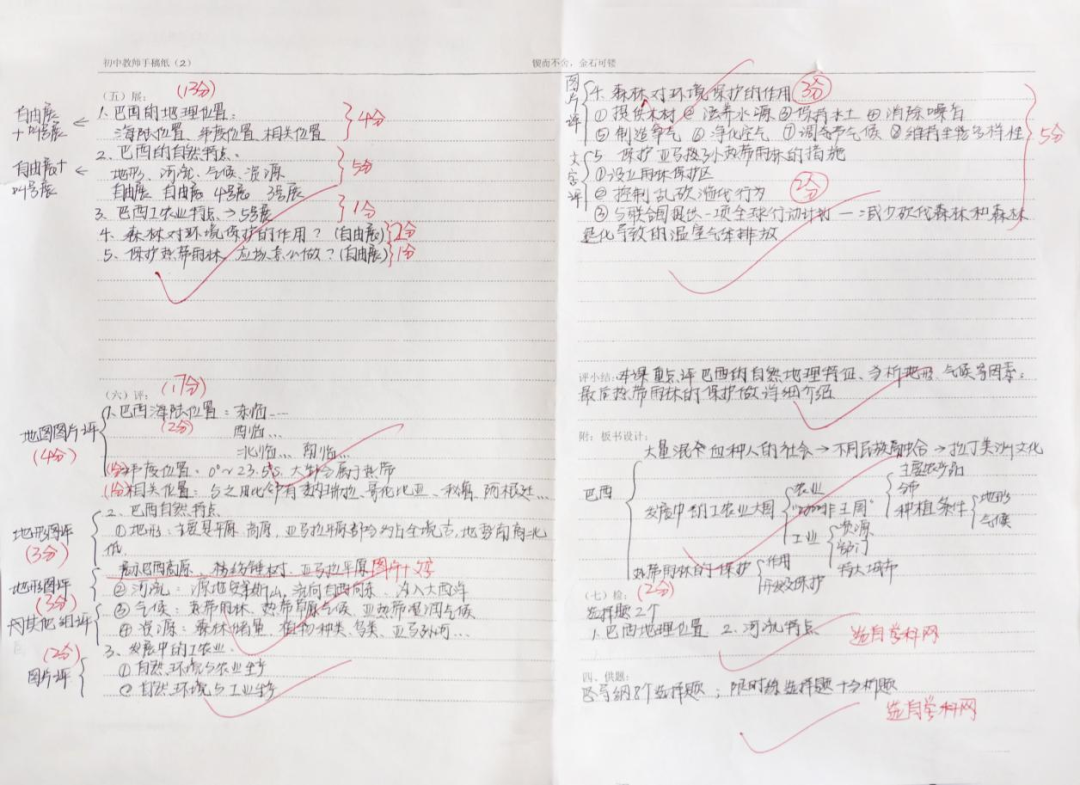 初中教师手稿纸（2）
（五）展：
(13分)
自由展
+叫号展
1、巴西的地理位置：
海陆位置、纬度位置、相关位置
4分
自由展+
叫号展
2、巴西的自然特点、
地形、河流、气候、资源
自由展 自由展 4号展 3号展
5分
3、巴西工农业特点→5号展
1分
4、森林对环境保护的作用？(自由展)
2分
5、保护热带雨林，应该怎么做？(自由展)
1分
（六）评：
(17分)
地图图片评
(4分)
1、巴西海陆位置：东临…
(2分)
西临…
北临… 南临…
(1分)纬度位置：0°~23.5°S，大部分属于热带
(1分)相关位置：
2、巴西自然特点
地形图评
(3分)
①地形：主要是平原、高原，亚马孙平原
低
地形图评
(3分)
图片+文字
②河流：源地安第斯山，流向自西向东，注入大西洋
③气候：热带雨林、热带草原气候、亚热带湿润气候
④资源：森林
(2分)
图片评
3、发展中的工农业
①自然环境与农业生产
②自然环境与工业生产
锲而不舍，金石可镂
图片评
4、森林对环境保护的作用
3分
①提供木材 ②涵养水源 ③保持水土 ④消除噪音
⑤制造氧气 ⑥净化空气 ⑦调节气候 ⑧维持生物多样性
5分
文字评
5、保护亚马孙热带雨林的措施
①设立雨林保护区
②控制乱砍滥伐行为
2分
③与联合国提供一项全球行动计划——减少砍伐森林和森林
退化导致的温室气体排放
评小结：本课重点评巴西的自然地理特征、分析地形、气候等因素；
最后热带雨林的保护做详细介绍
附：板书设计：
大量混合血种人的社会→不同民族融合→拉丁美洲文化
巴西
发展中的工农业大国
农业
主要农产品
分布
种植条件
地形
气候
工业
资源
部门
特大城市
热带雨林的保护
作用
开发及保护
（七）检：
(2分)
选择题2个
1、巴西地理位置 2、河流特点
选自学科网
四、供题：
导纲8个选择题；限时练选择题+分析题
选自学科网